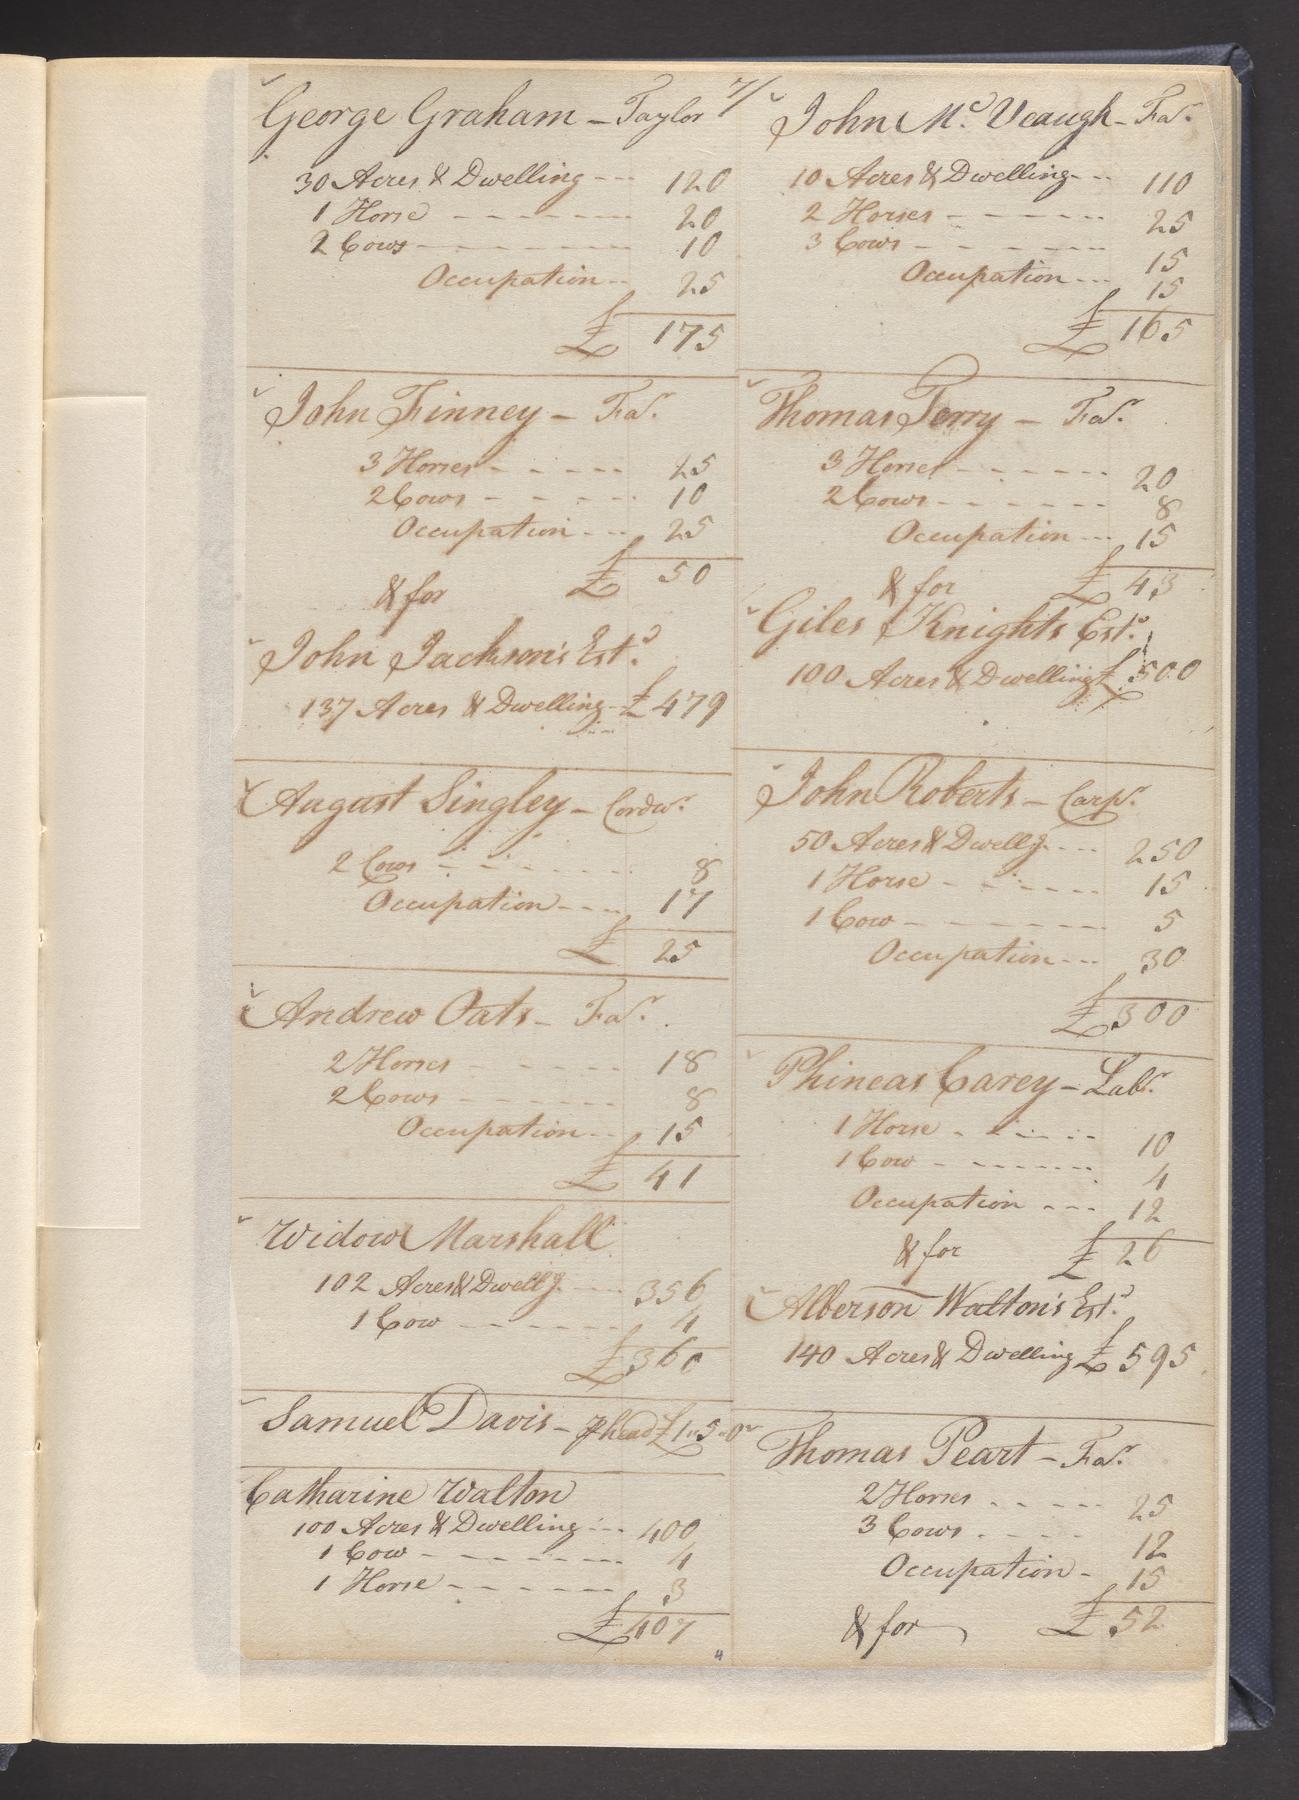 George Graham - Taylor 7/
30 Acres & Dwelling --- 120
1 Horse ------- 20
2 Cows ------- 10
Occupation -- 25
£ 175
John Finney - Far.
3 Horses ----- 15
2 Cows ----- 10
Occupation --- 25
£ 50
& for
John Jackson's Estd.
137 Acres & Dwelling - £ 479
August Singley - Cordwr.
2 Cows ------ 8
Occupation ---- 17
£ 25
Andrew Oats - Far.
2 Horses ------ 18
2 Cows ------ 8
Occupation -- 15
£ 41
Widow Marshall
102 Acres & Dwellg. --- 356
1 Cow ------ 4
£ 360
Samuel Davis - P head £ 1..5..0
Catharine Walton
100 Acres & Dwelling --- 400
1 Cow ------- 4
1 Horse ------ 3
£ 407
4
John Mc. Veaugh - Far.
10 Acres & Dwelling --- 110
2 Horses ------ 25
3 Cows ------ 15
Occupation --- 15
£ 165
Thomas Terry - Far.
3 Horses ------ 20
2 Cows ------ 8
Occupation --- 15
& for £ 43
Giles Knights Estd.
100 Acres & Dwelling £ 500
John Roberts - Carpr.
50 Acres & Dwellg. --- 250
1 Horse ------ 15
1 Cow ------- 5
Occupation --- 30
£ 300
Phineas Carey - Labr.
1 Horse ------ 10
1 Cow ------- 4
Occupation --- 12
& for £ 26
Alberson Walton's Estd.
140 Acres & Dwelling £ 595
Thomas Peart - Far.
2 Horses ----- 25
3 Cows ---- 12
Occupation - 15
& for £ 52